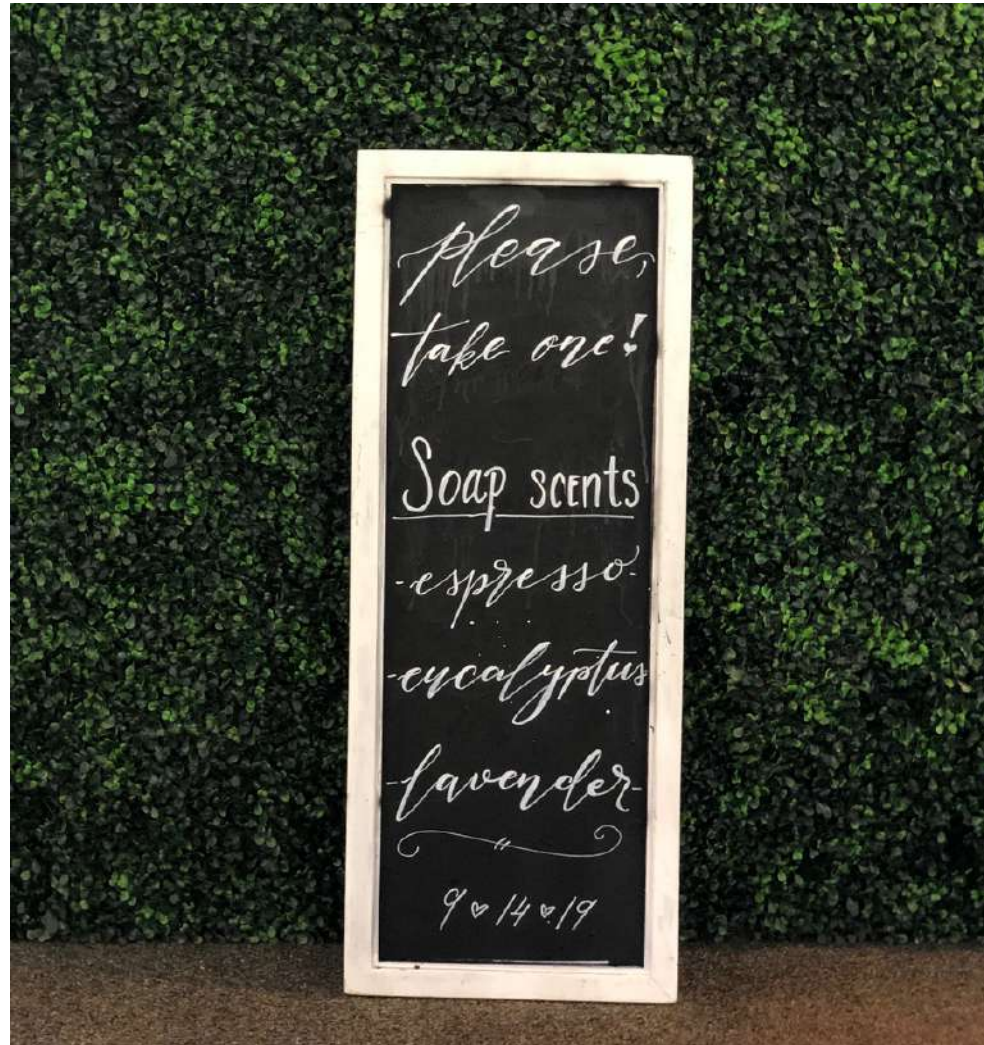 please,
take one!
Soap scents
-espresso-
-eucalyptus
-lavender-
9 ♡ 14 ♡ 19